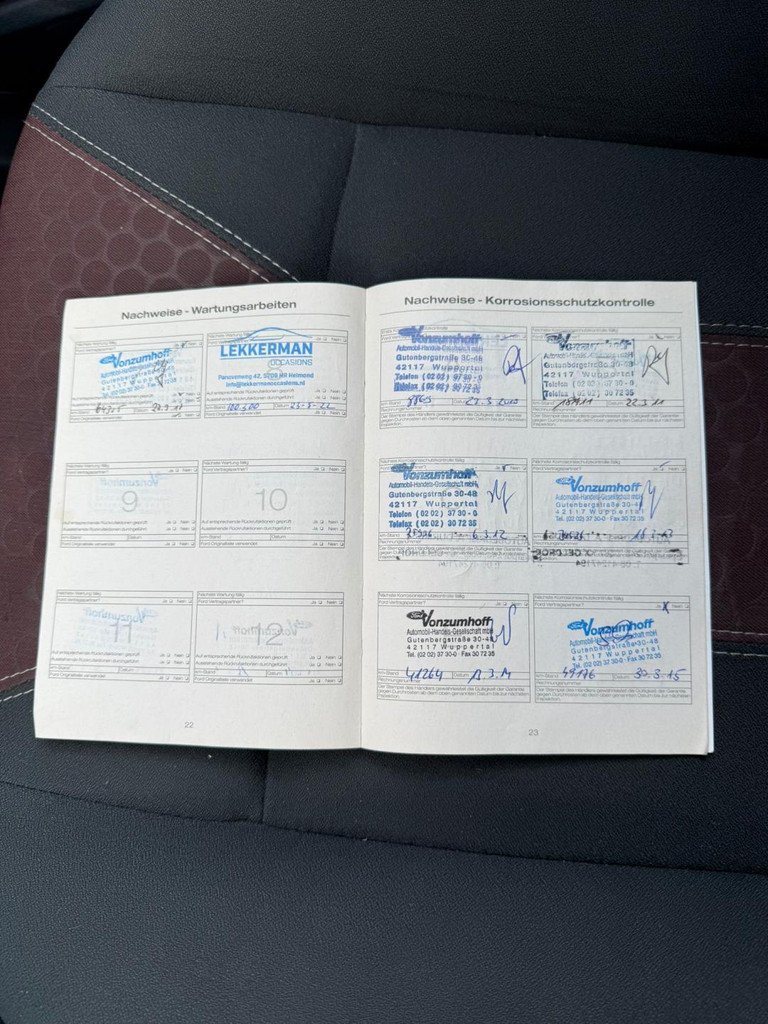 Nachweise - Wartungsarbeiten
Nächste Wartung fällig
Ford Vertragspartner? Ja Nein
Vonzumhoff
Automobil-Handels-Gesellschaft mbH
Gutenbergstraße 30-48
42117 Wuppertal
km-Stand Datum
Ford Originalteile verwendet Ja Nein
LEKKERMAN
OCCASIONS
Panovenweg 42, 5708 HR Helmond
info@lekkermanoccasions.nl
Auf entsprechende Rückrufaktionen geprüft Ja Nein
Ausstehende Rückrufaktionen durchgeführt Ja Nein
km-Stand Datum 23-5-22
Ford Originalteile verwendet Ja Nein
Nächste Wartung fällig
Ford Vertragspartner? Ja Nein
9
Auf entsprechende Rückrufaktionen geprüft Ja Nein
Ausstehende Rückrufaktionen durchgeführt Ja Nein
km-Stand Datum
Ford Originalteile verwendet Ja Nein
Nächste Wartung fällig
Ford Vertragspartner? Ja Nein
10
Auf entsprechende Rückrufaktionen geprüft Ja Nein
Ausstehende Rückrufaktionen durchgeführt Ja Nein
km-Stand Datum
Ford Originalteile verwendet Ja Nein
Nächste Wartung fällig
Ford Vertragspartner? Ja Nein
11
Auf entsprechende Rückrufaktionen geprüft Ja Nein
Ausstehende Rückrufaktionen durchgeführt Ja Nein
km-Stand Datum
Ford Originalteile verwendet Ja Nein
Nächste Wartung fällig
Ford Vertragspartner? Ja Nein
12
Auf entsprechende Rückrufaktionen geprüft Ja Nein
Ausstehende Rückrufaktionen durchgeführt Ja Nein
km-Stand Datum
Ford Originalteile verwendet Ja Nein
22
Nachweise - Korrosionsschutzkontrolle
Vonzumhoff
Automobil-Handels-Gesellschaft mbH
Gutenbergstraße 30-48
42117 Wuppertal
Telefon (02 02) 37 30-0
Telefax (02 02) 30 72 35
Datum 22.3.2010
Rechnungsnummer
Der Stempel des Händlers gewährleistet die Gültigkeit der Garantie
gegen Durchrosten ab dem oben genannten Datum bis zur nächsten
Inspektion.
Nächste Korrosionsschutzkontrolle fällig
Gutenbergstraße 30-48
42117 Wuppertal
Telefon (02 02) 37 30-0
Telefax (02 02) 30 72 35
km-Stand Datum 22.3.11
Rechnungsnummer
Der Stempel des Händlers gewährleistet die Gültigkeit der Garantie
gegen Durchrosten ab dem oben genannten Datum bis zur nächsten
Inspektion.
Nächste Korrosionsschutzkontrolle fällig
Ford Vertragspartner? Ja Nein
Vonzumhoff
Automobil-Handels-Gesellschaft mbH
Gutenbergstraße 30-48
42117 Wuppertal
Telefon (02 02) 37 30-0
Telefax (02 02) 30 72 35
km-Stand Datum 6.3.12
Nächste Korrosionsschutzkontrolle fällig
Ford Vertragspartner? Ja Nein
Vonzumhoff
Automobil-Handels-Gesellschaft mbH
Gutenbergstraße 30-48
42117 Wuppertal
Tel. (02 02) 37 30-0 · Fax 30 72 35
Nächste Korrosionsschutzkontrolle fällig
Ford Vertragspartner? Ja Nein
Vonzumhoff
Automobil-Handels-Gesellschaft mbH
Gutenbergstraße 30-48
42117 Wuppertal
Tel. (02 02) 37 30-0 · Fax 30 72 35
km-Stand 41264 Datum
Rechnungsnummer
Der Stempel des Händlers gewährleistet die Gültigkeit der Garantie
gegen Durchrosten ab dem oben genannten Datum bis zur nächsten
Inspektion.
Nächste Korrosionsschutzkontrolle fällig
Ford Vertragspartner? Ja Nein
Vonzumhoff
Automobil-Handels-Gesellschaft mbH
Gutenbergstraße 30-48
42117 Wuppertal
Tel. (02 02) 37 30-0 · Fax 30 72 35
km-Stand 49176 Datum 30.3.15
Rechnungsnummer
Der Stempel des Händlers gewährleistet die Gültigkeit der Garantie
gegen Durchrosten ab dem oben genannten Datum bis zur nächsten
Inspektion.
23